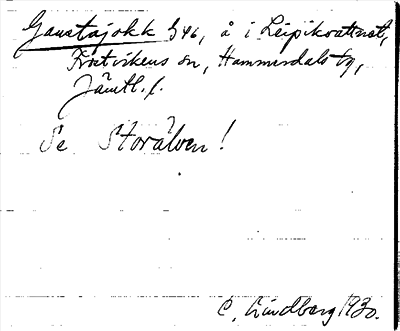 Gaustajokk §46, å i Leipikvattnet,
Frostvikens sn, Hammerdals tg,
Jämtl. l.
Se Storälven!
C. Lindberg 1930.